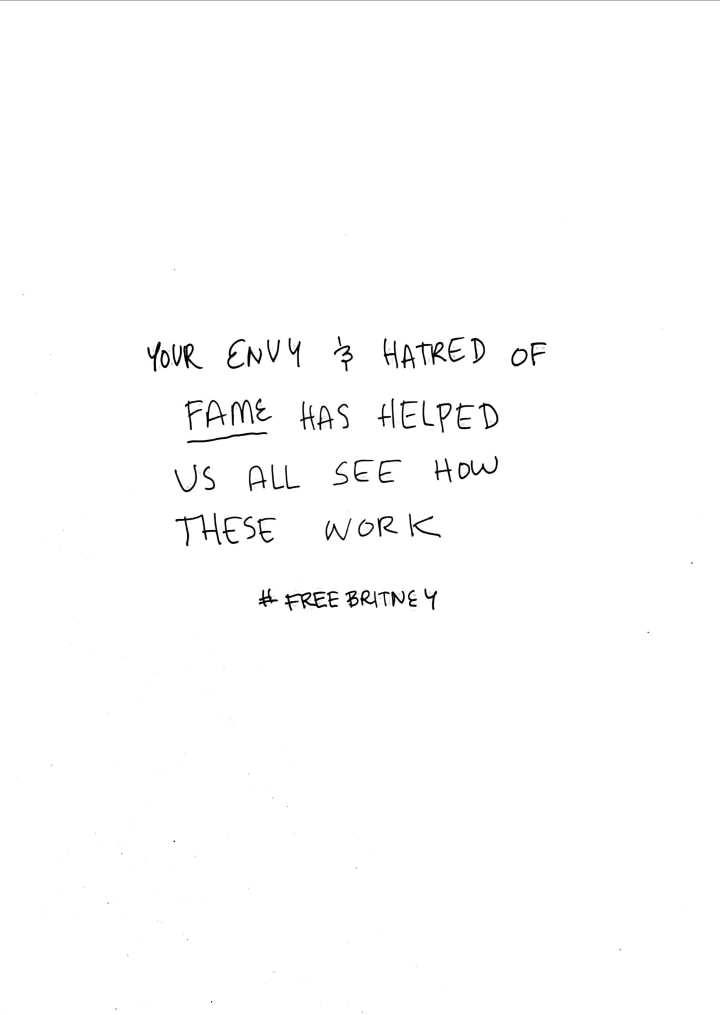 YOUR ENVY & HATRED OF
FAME HAS HELPED
US ALL SEE HOW
THESE WORK
# FREE BRITNEY